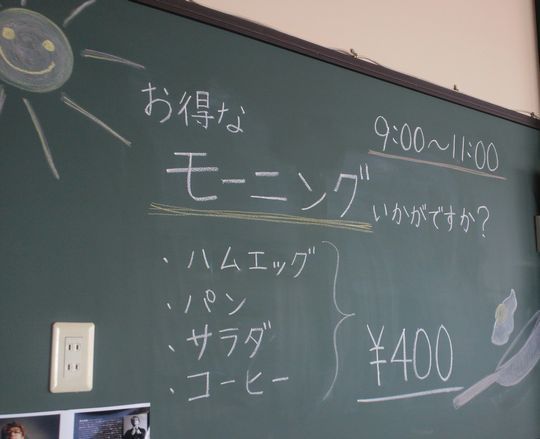 お得な
モーニング
9:00〜11:00
いかがですか?
・ハムエッグ
・パン
・サラダ
・コーヒー
¥400